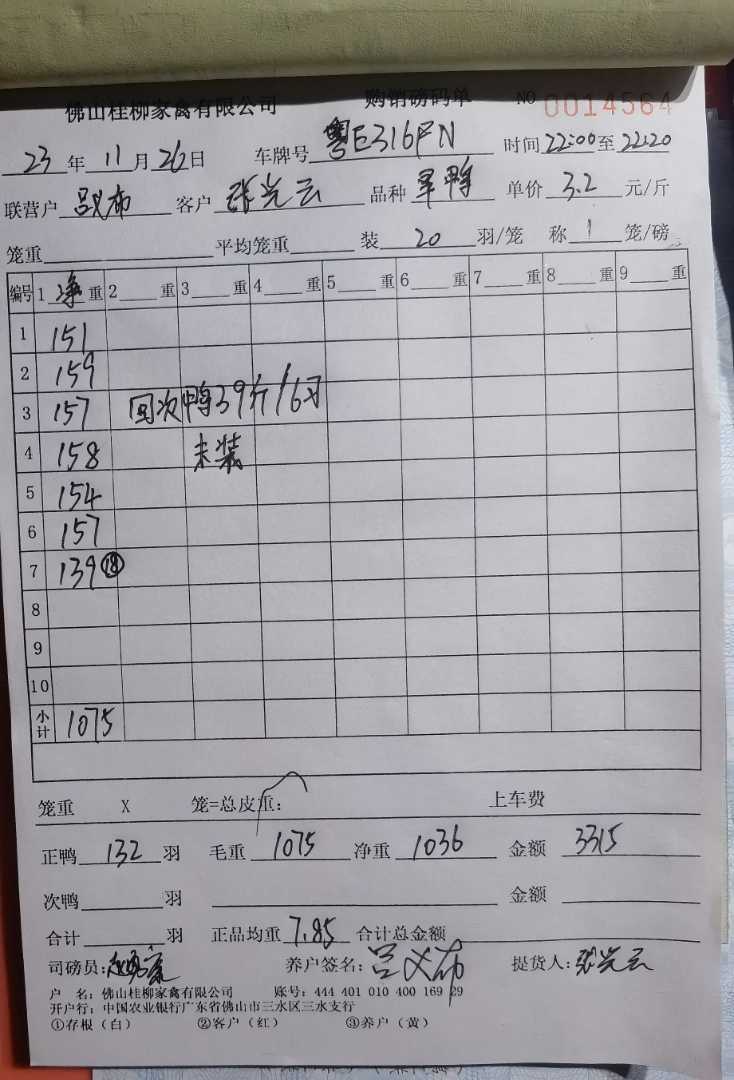 佛山桂柳家禽有限公司 购销磅码单 NO 0014564
23年11月26日 车牌号 粤E316FN 时间22:00至22:20
联营户 吕义布 客户 张光云 品种 旱鸭 单价 3.2 元/斤
笼重 平均笼重 装 20 羽/笼 称 1 笼/磅
编号 1 净 重 2 重 3 重 4 重 5 重 6 重 7 重 8 重 9 重
1 151
2 159
3 157 回次鸭39斤/6只
4 158 未装
5 154
6 157
7 139 ⑱
8
9
10
小计 1075
笼重 X 笼=总皮重: 上车费
正鸭 132 羽 毛重 1075 净重 1036 金额 3315
次鸭 羽 金额
合计 羽 正品均重 7.85 合计总金额
司磅员: 养户签名: 吕义布 提货人: 张光云
户 名: 佛山桂柳家禽有限公司 账号: 444 401 010 400 169 29
开户行: 中国农业银行广东省佛山市三水区三水支行
①存根(白) ②客户(红) ③养户(黄)